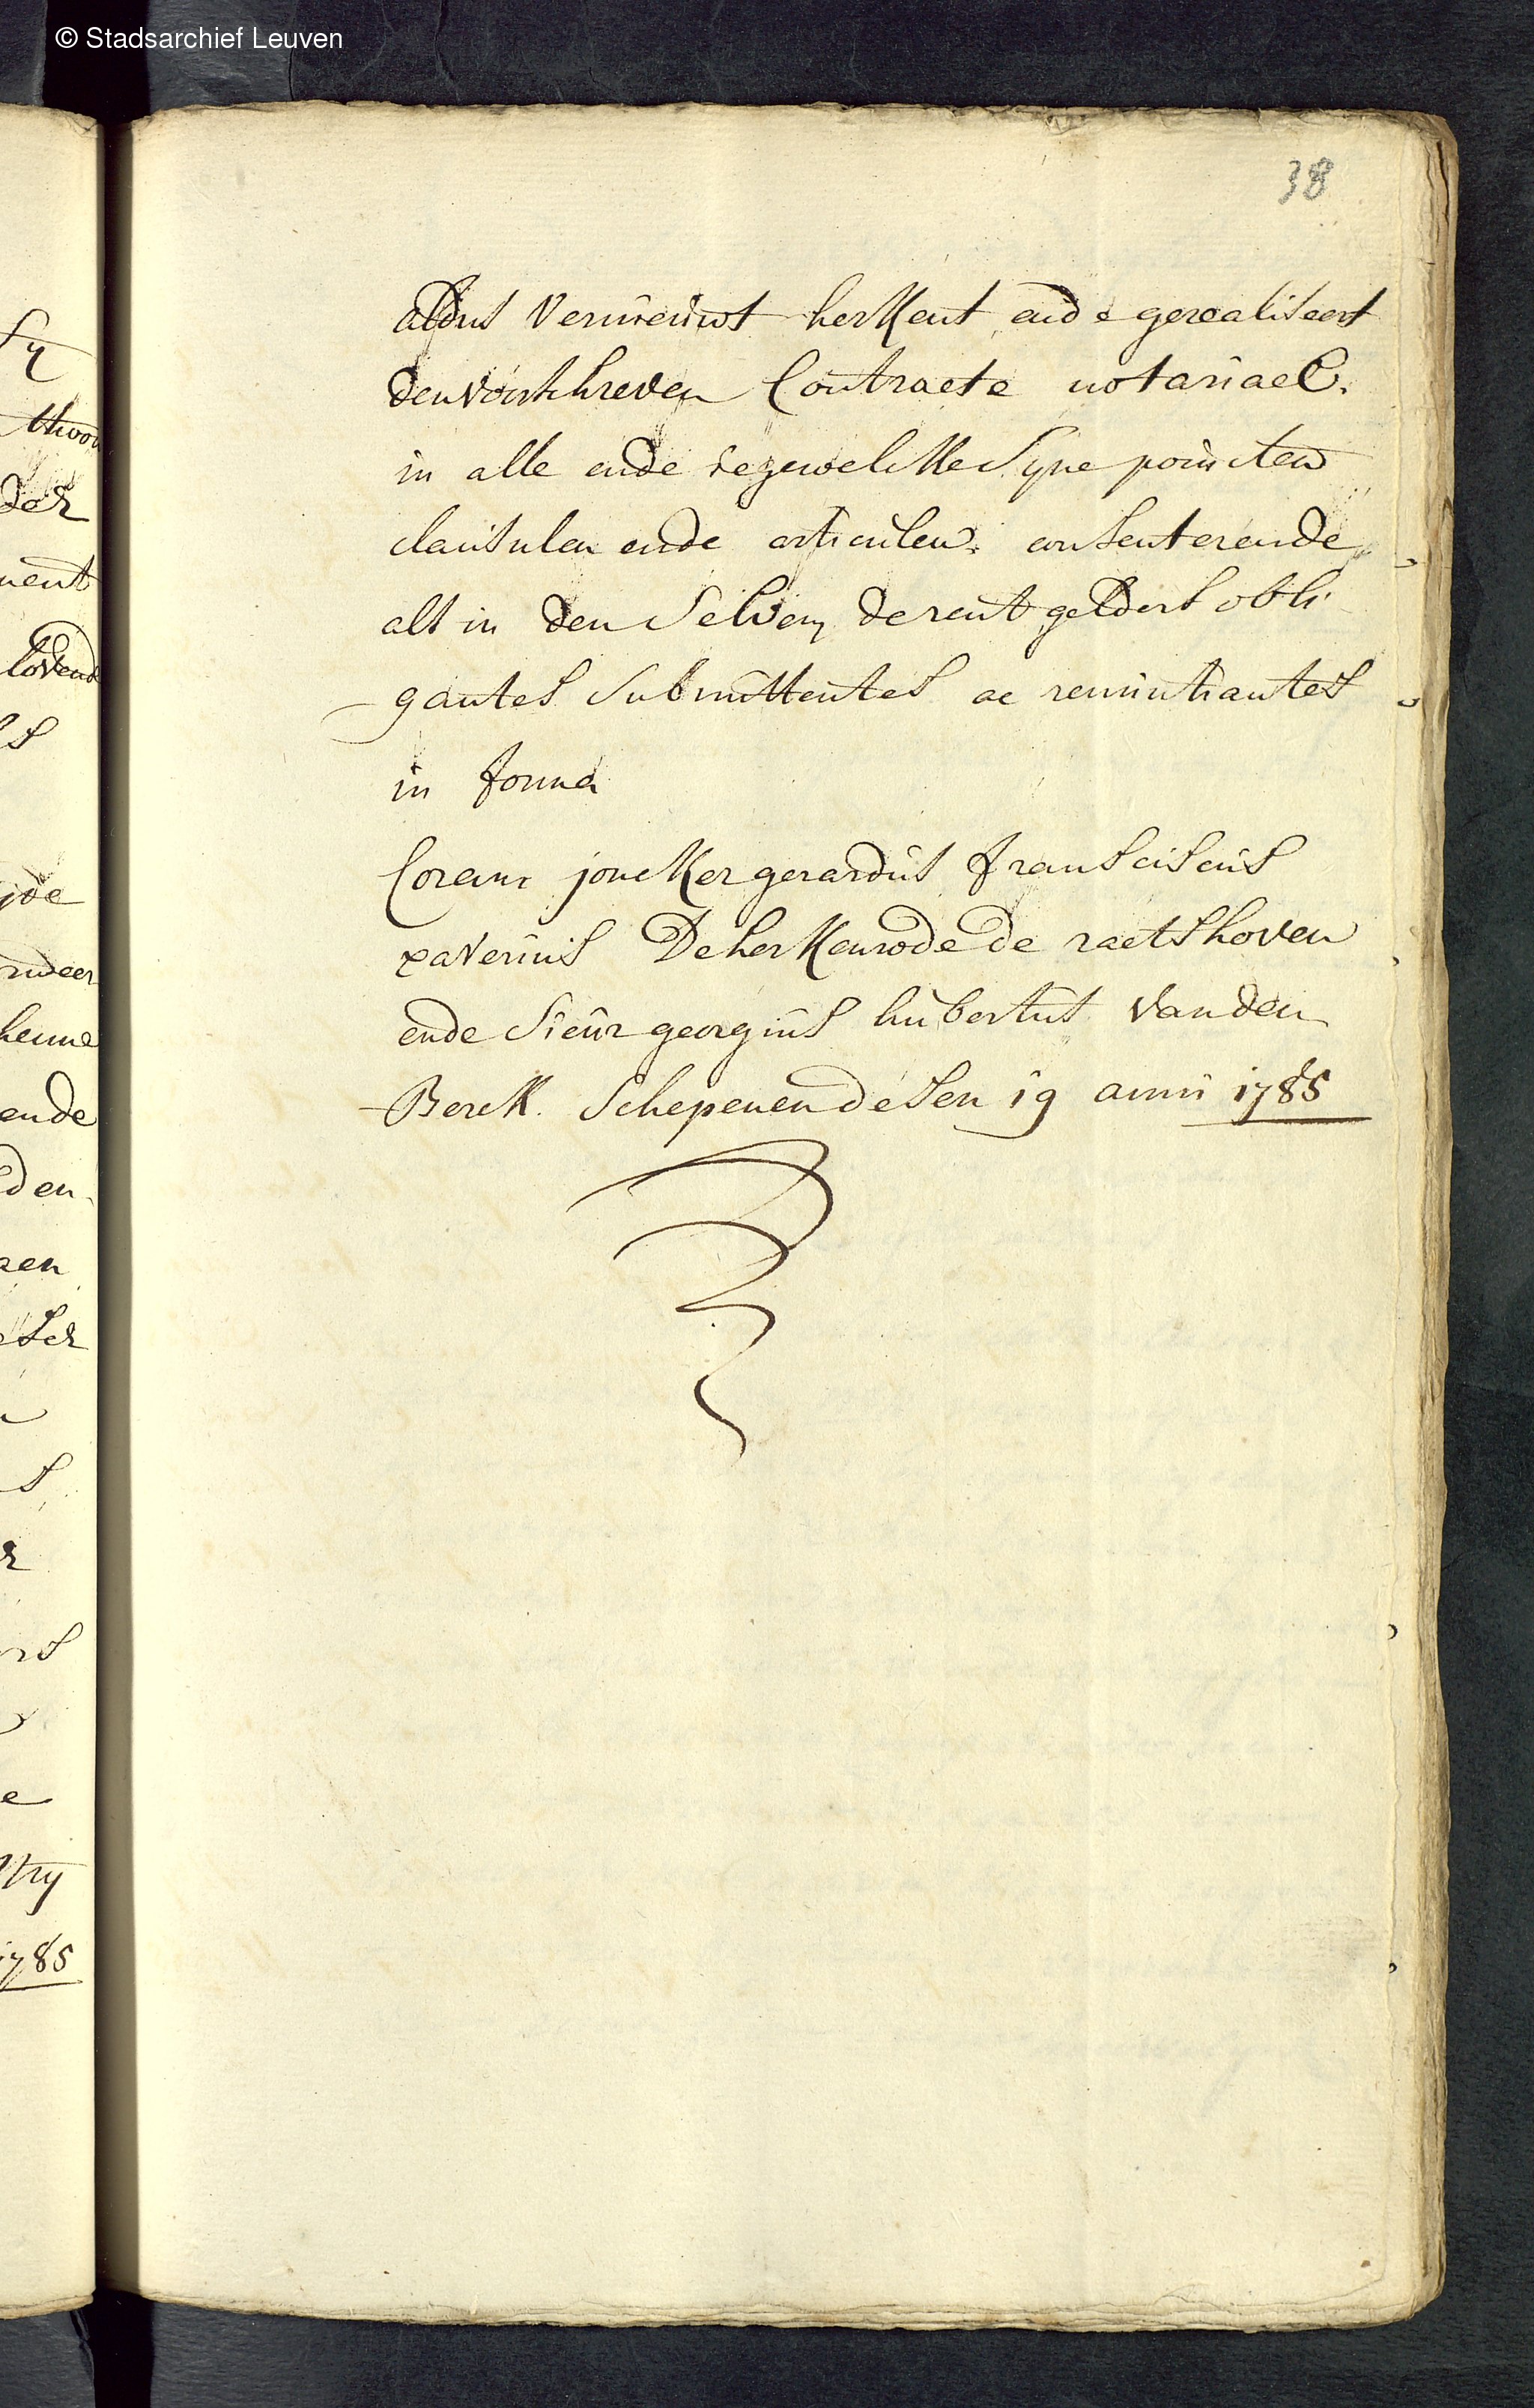 © Stadsarchief Leuven
38
aldus vernieuwt herkent ende gerealiseert
den voorschreven Contracte notariael.
in alle ende iegewelcke syne poincten
clausulen ende articulen. consenterende
als in den selven derentgelders obli
gantes submittentes ac renuntiantes
in forma
Coram joncker gerardus franciscus
xaverius De herkenrode de raetshoven
ende sieur georgius hubertus vanden
Berck. schepenen desen 19 anni 1785
sy
thoon
der
ment
lovend
s
jde
meer
henne
ende
den.
en
ser
s
e
try
1785